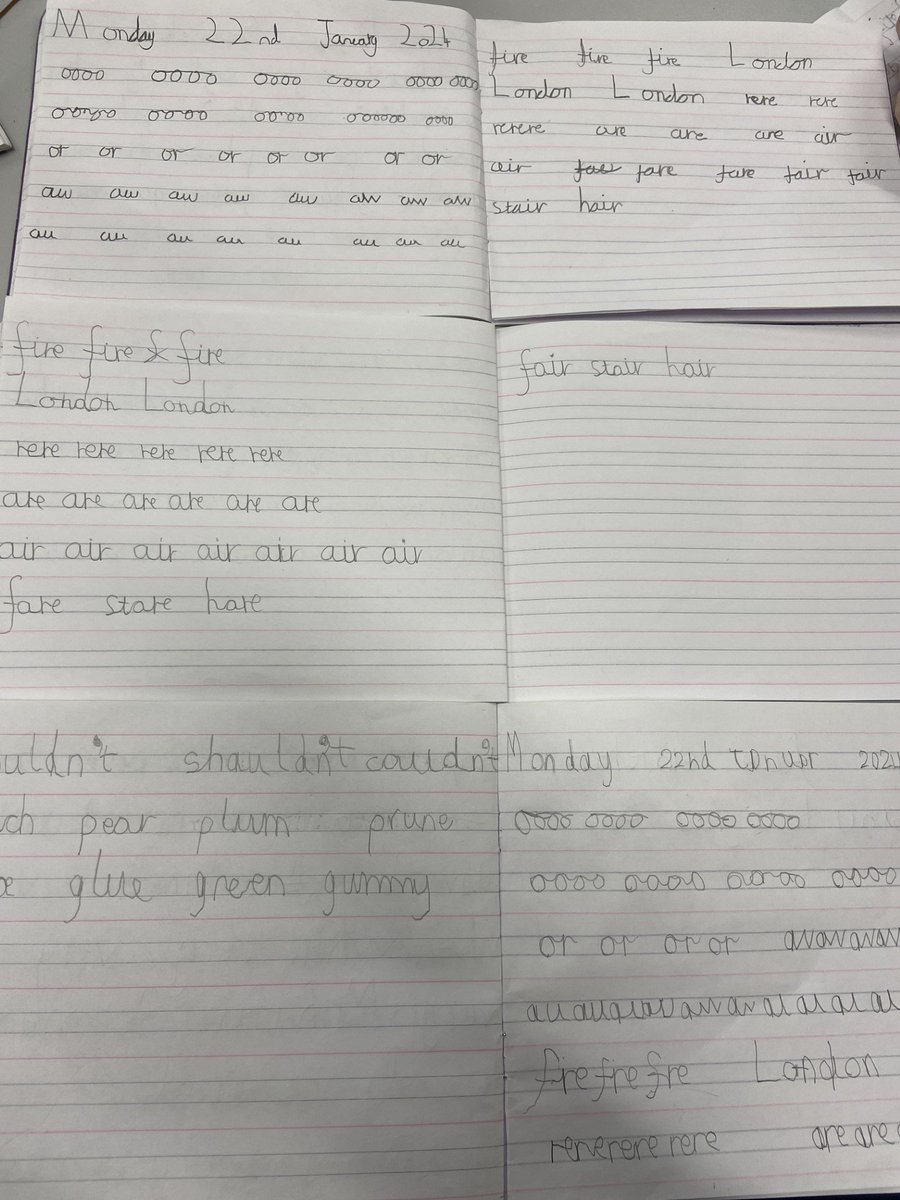 Monday 22nd January 2024
oooo oooo oooo oooo oooo oooo
oooo oooo oooo oooooo oooo
or or or or or or or or
aw aw aw aw aw aw aw aw
au au au au au au au au
fire fire fire London
London London rere rere
rerere are are are air
air fare fare fair fair
stair hair
fire fire fire
London London
rere rere rere rere rere
are are are are are are
air air air air air air air
fare stare hare
fair stair hair
uldn't shauldn't couldn't
ch pear plum prune
glue green gummy
Monday 22nd 202
oooo oooo oooo oooo
oooo oooo oooo oooo
or or or or awawawaw
fire fire fre London
rerererere rere are are